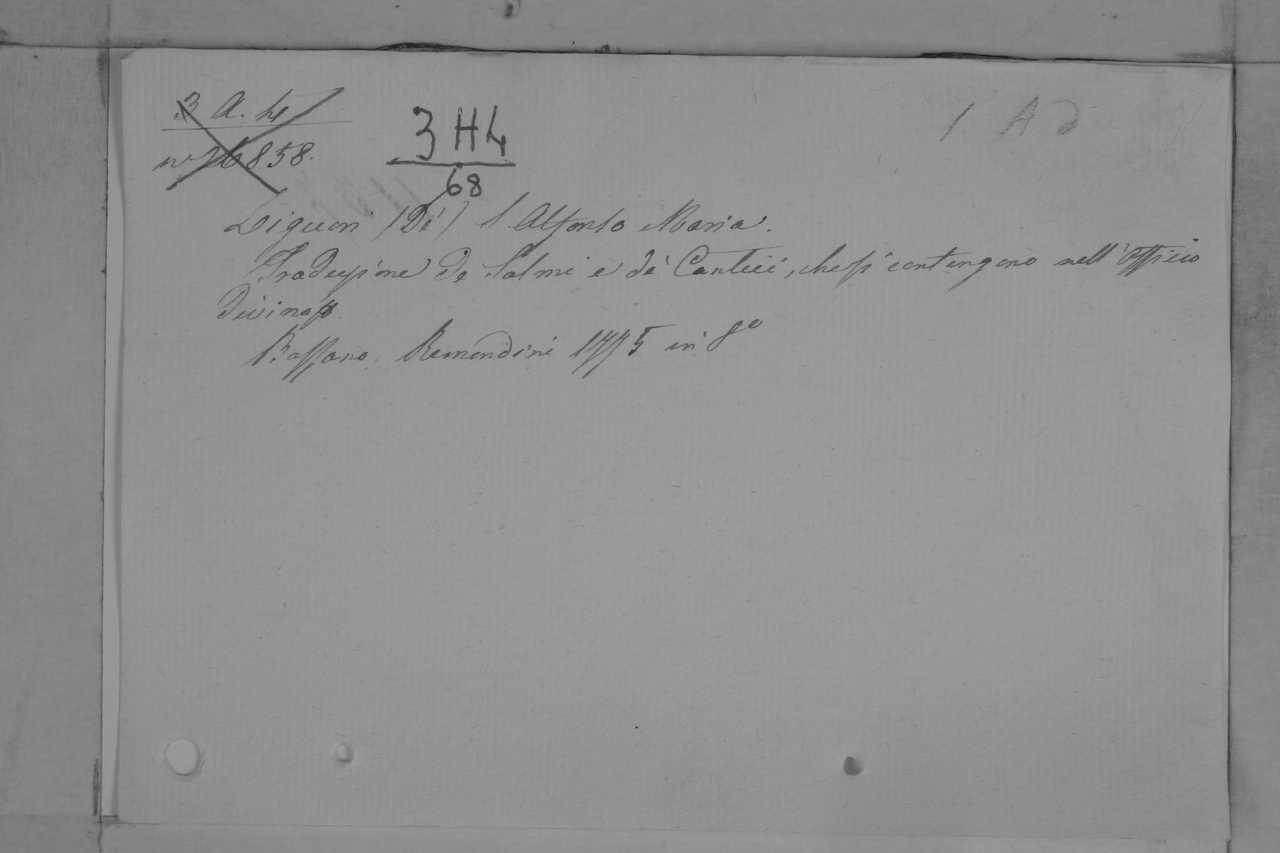 3 A. 4
n. 26858.
3 H4
68
1 A d
Liguori (De') S. Alfonso Maria.
Traduzione de Salmi e de' Cantici, che si contengono nell'Officio
Divino.
Bassano, Remondini 1775 in 8º